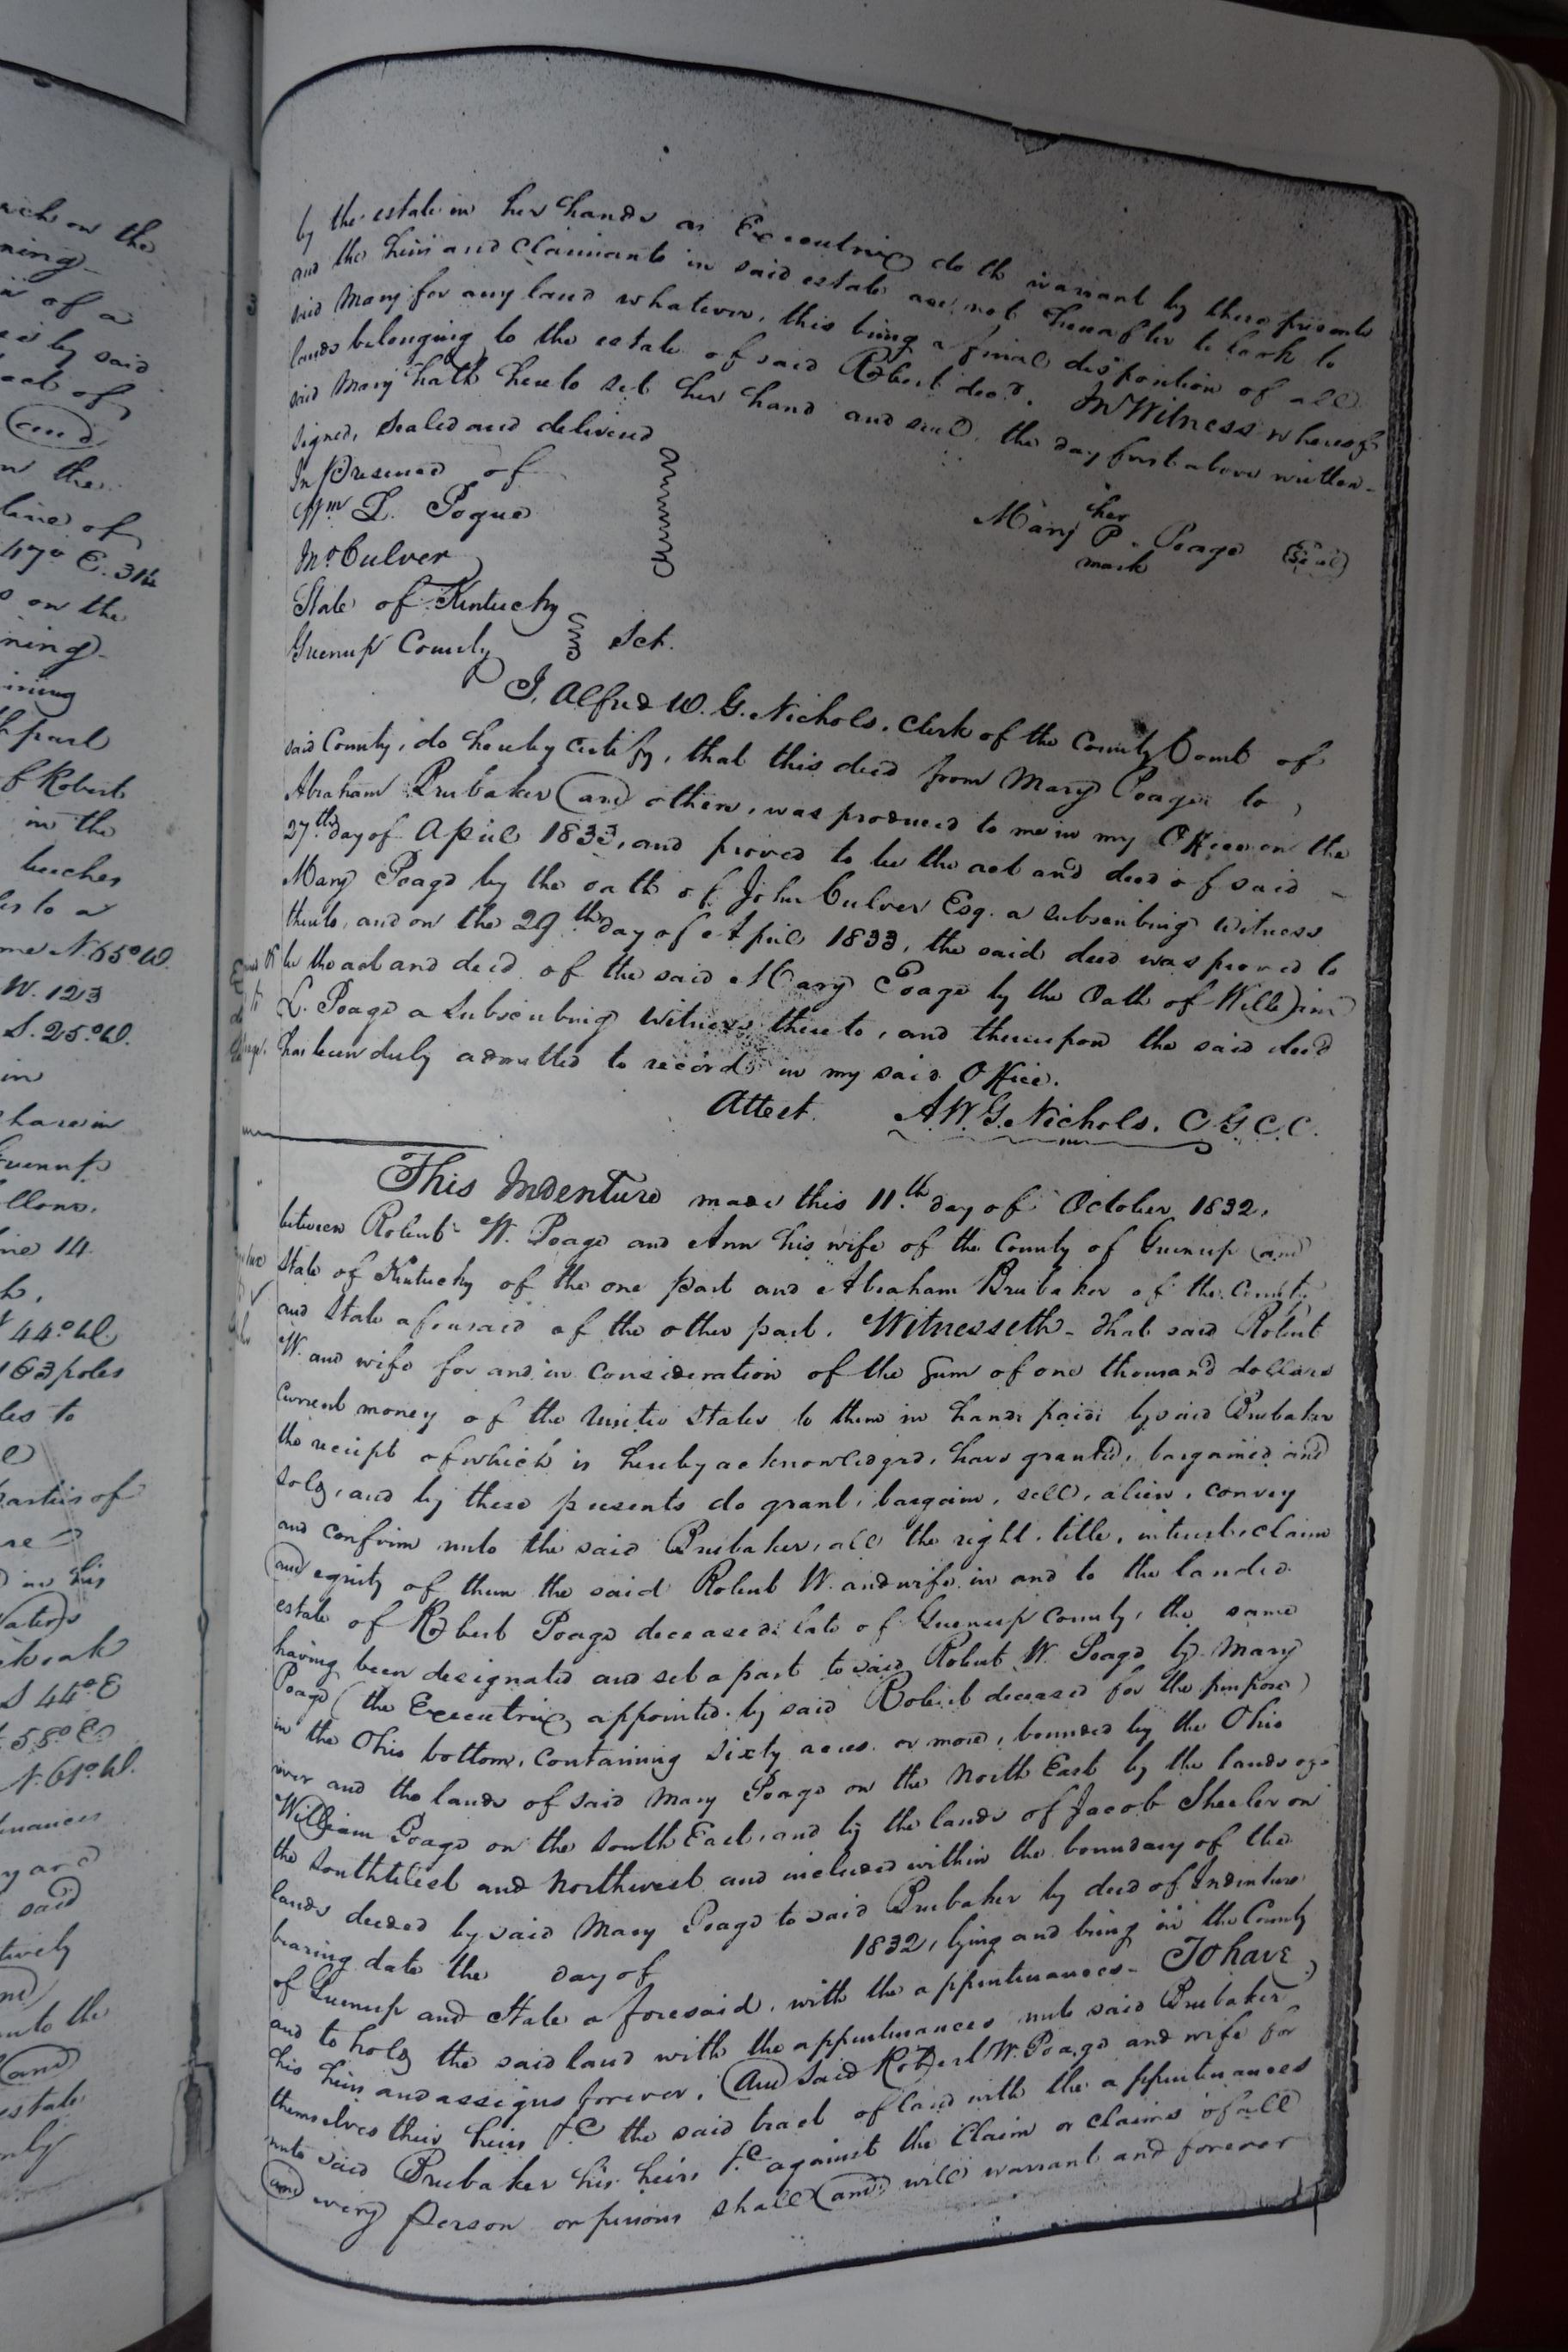 ach on the
ning
of a
by said
of
and
n the
line of
47° E. 314
on the
ning
ining
part
f Robert
in the
beeches
les to a
me N. 65° W.
W. 123
S. 25° W.
in
has in
Greenup
llows.
ine 14
h,
44° W.
163 poles
les to
parties of
in his
S 44° E
58° E
N. 61° W.
tenances
said
tively
unto the
and
estate
by the estate in her hands as Executrix doth warrant by these presents
and the heirs and Claimants in said estate are not hereafter to look to
said Mary for any land whatever, this being a final disposition of all
lands belonging to the estate of said Robert decd. In Witness whereof
said Mary hath hereto set her hand and seal, the day first above written-
Signed, Sealed and delivered
In Presence of
Wm L. Pogue
Jno Culver
her
Mary P. Poage (Seal)
mark
State of Kentucky
Greenup County Sct.
I, Alfred W. G. Nichols, Clerk of the County Court of
said County, do hereby certify, that this deed from Mary Poage to
Abraham Brubaker and others, was produced to me in my Office on the
27th day of April 1833, and proved to be the act and deed of said -
Mary Poage by the oath of John Culver Esq. a subscribing witness
thereto, and on the 29th day of April 1833, the said deed was proved to
be the act and deed of the said Mary Poage by the Oath of William
L. Poage a Subscribing Witness thereto, and thereupon the said deed
has been duly admitted to record in my said Office.
Attest. A. W. G. Nichols. C G C C.
This Indenture made this 11th day of October 1832,
between Robert W. Poage and Ann his wife of the County of Greenup and
State of Kentucky of the one part and Abraham Brubaker of the County
and State aforesaid of the other part. Witnesseth- That said Robert
W. and wife for and in Consideration of the Sum of one thousand dollars
Current money of the United States to them in hand paid by said Brubaker
the receipt of which is hereby acknowledged, have granted, bargained and
sold, and by these presents do grant, bargain, sell, alien, convey
and confirm unto the said Brubaker, all the right, title, interest, claim
and equity of them the said Robert W. and wife in and to the landed
estate of Robert Poage deceased late of Greenup County, the same
having been designated and set apart to said Robert W. Poage by Mary
Poage (the Executrix appointed by said Robert deceased for the purpose)
in the Ohio bottom, containing sixty acres or more, bounded by the Ohio
river and the lands of said Mary Poage on the North East by the lands of
William Poage on the South East, and by the lands of Jacob Sheeler on
the South West and Northwest and included within the boundary of the
lands deeded by said Mary Poage to said Brubaker by deed of Indenture
bearing date the day of 1832, lying and being in the County
of Greenup and State aforesaid, with the appurtenances- To have
and to hold the said land with the appurtenances unto said Brubaker
his heirs and assigns forever. And said Robert W. Poage and wife for
themselves their heirs &c the said tract of land with the appurtenances
unto said Brubaker his heirs &c against the Claim or claims of all
and every person or persons shall and will warrant and forever